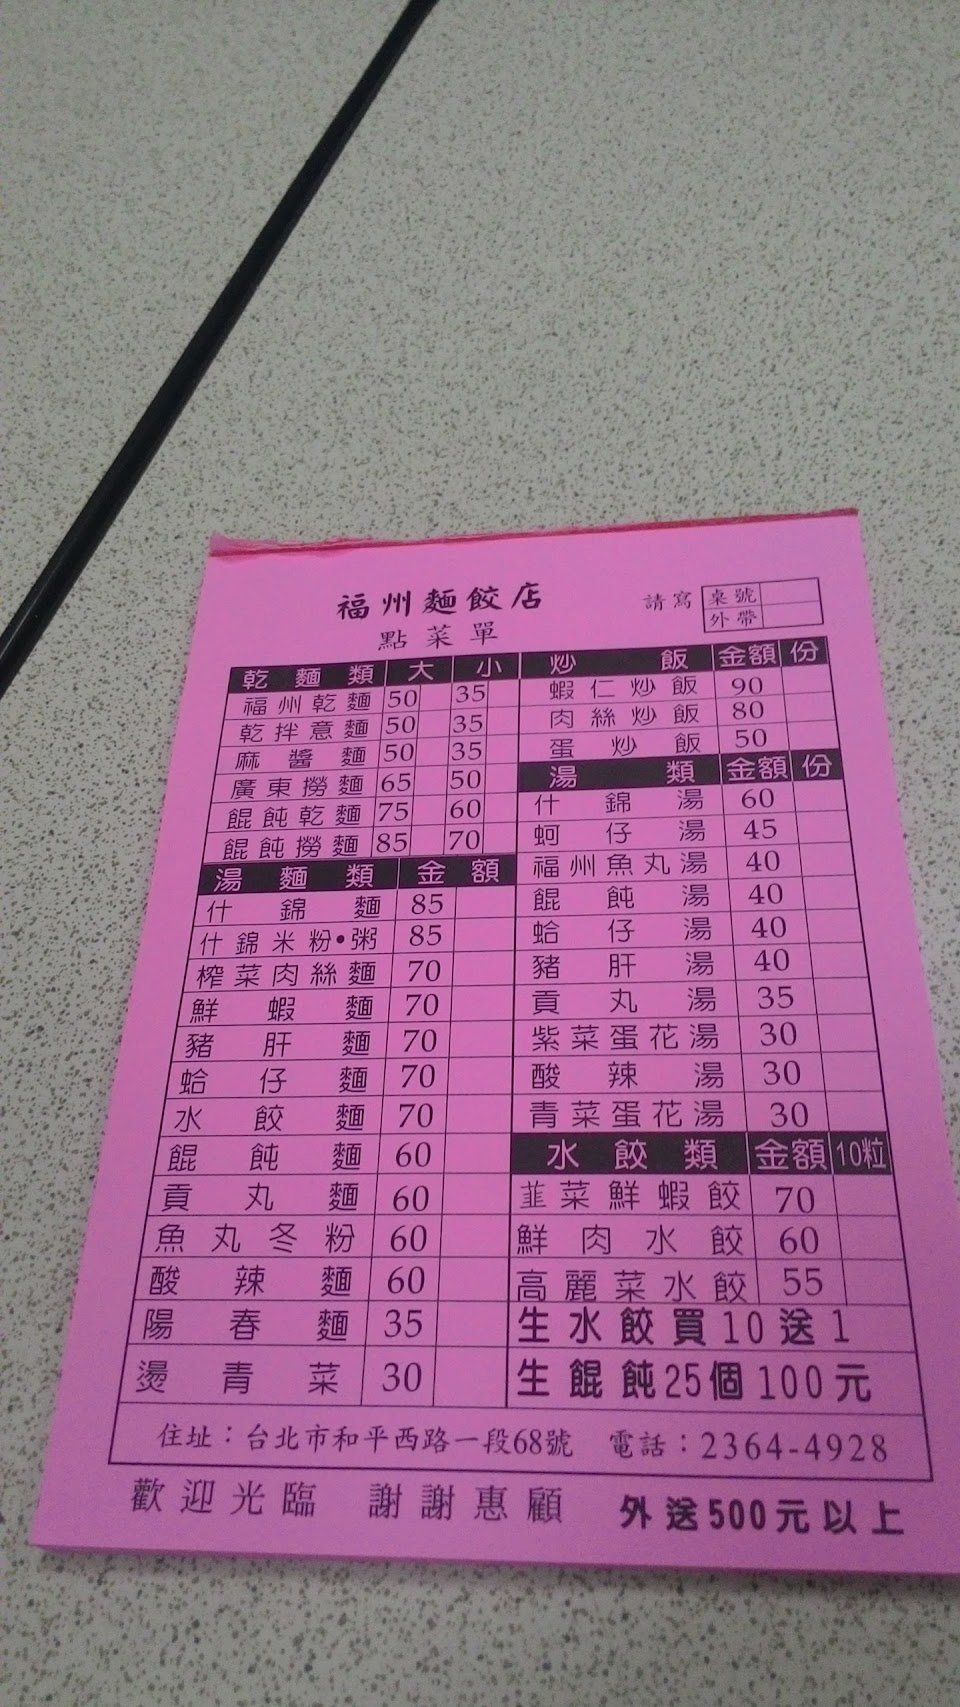 福州麵餃店
點菜單
請寫 桌號
外帶
乾麵類 大 小
福州乾麵 50 35
乾拌意麵 50 35
麻醬麵 50 35
廣東撈麵 65 50
餛飩乾麵 75 60
餛飩撈麵 85 70
湯麵類 金額
什錦麵 85
什錦米粉•粥 85
榨菜肉絲麵 70
鮮蝦麵 70
豬肝麵 70
蛤仔麵 70
水餃麵 70
餛飩麵 60
貢丸麵 60
魚丸冬粉 60
酸辣麵 60
陽春麵 35
燙青菜 30
炒飯 金額 份
蝦仁炒飯 90
肉絲炒飯 80
蛋炒飯 50
湯類 金額 份
什錦湯 60
蚵仔湯 45
福州魚丸湯 40
餛飩湯 40
蛤仔湯 40
豬肝湯 40
貢丸湯 35
紫菜蛋花湯 30
酸辣湯 30
青菜蛋花湯 30
水餃類 金額 10粒
韮菜鮮蝦餃 70
鮮肉水餃 60
高麗菜水餃 55
生水餃買10送1
生餛飩25個100元
住址：台北市和平西路一段68號 電話：2364-4928
歡迎光臨 謝謝惠顧 外送500元以上